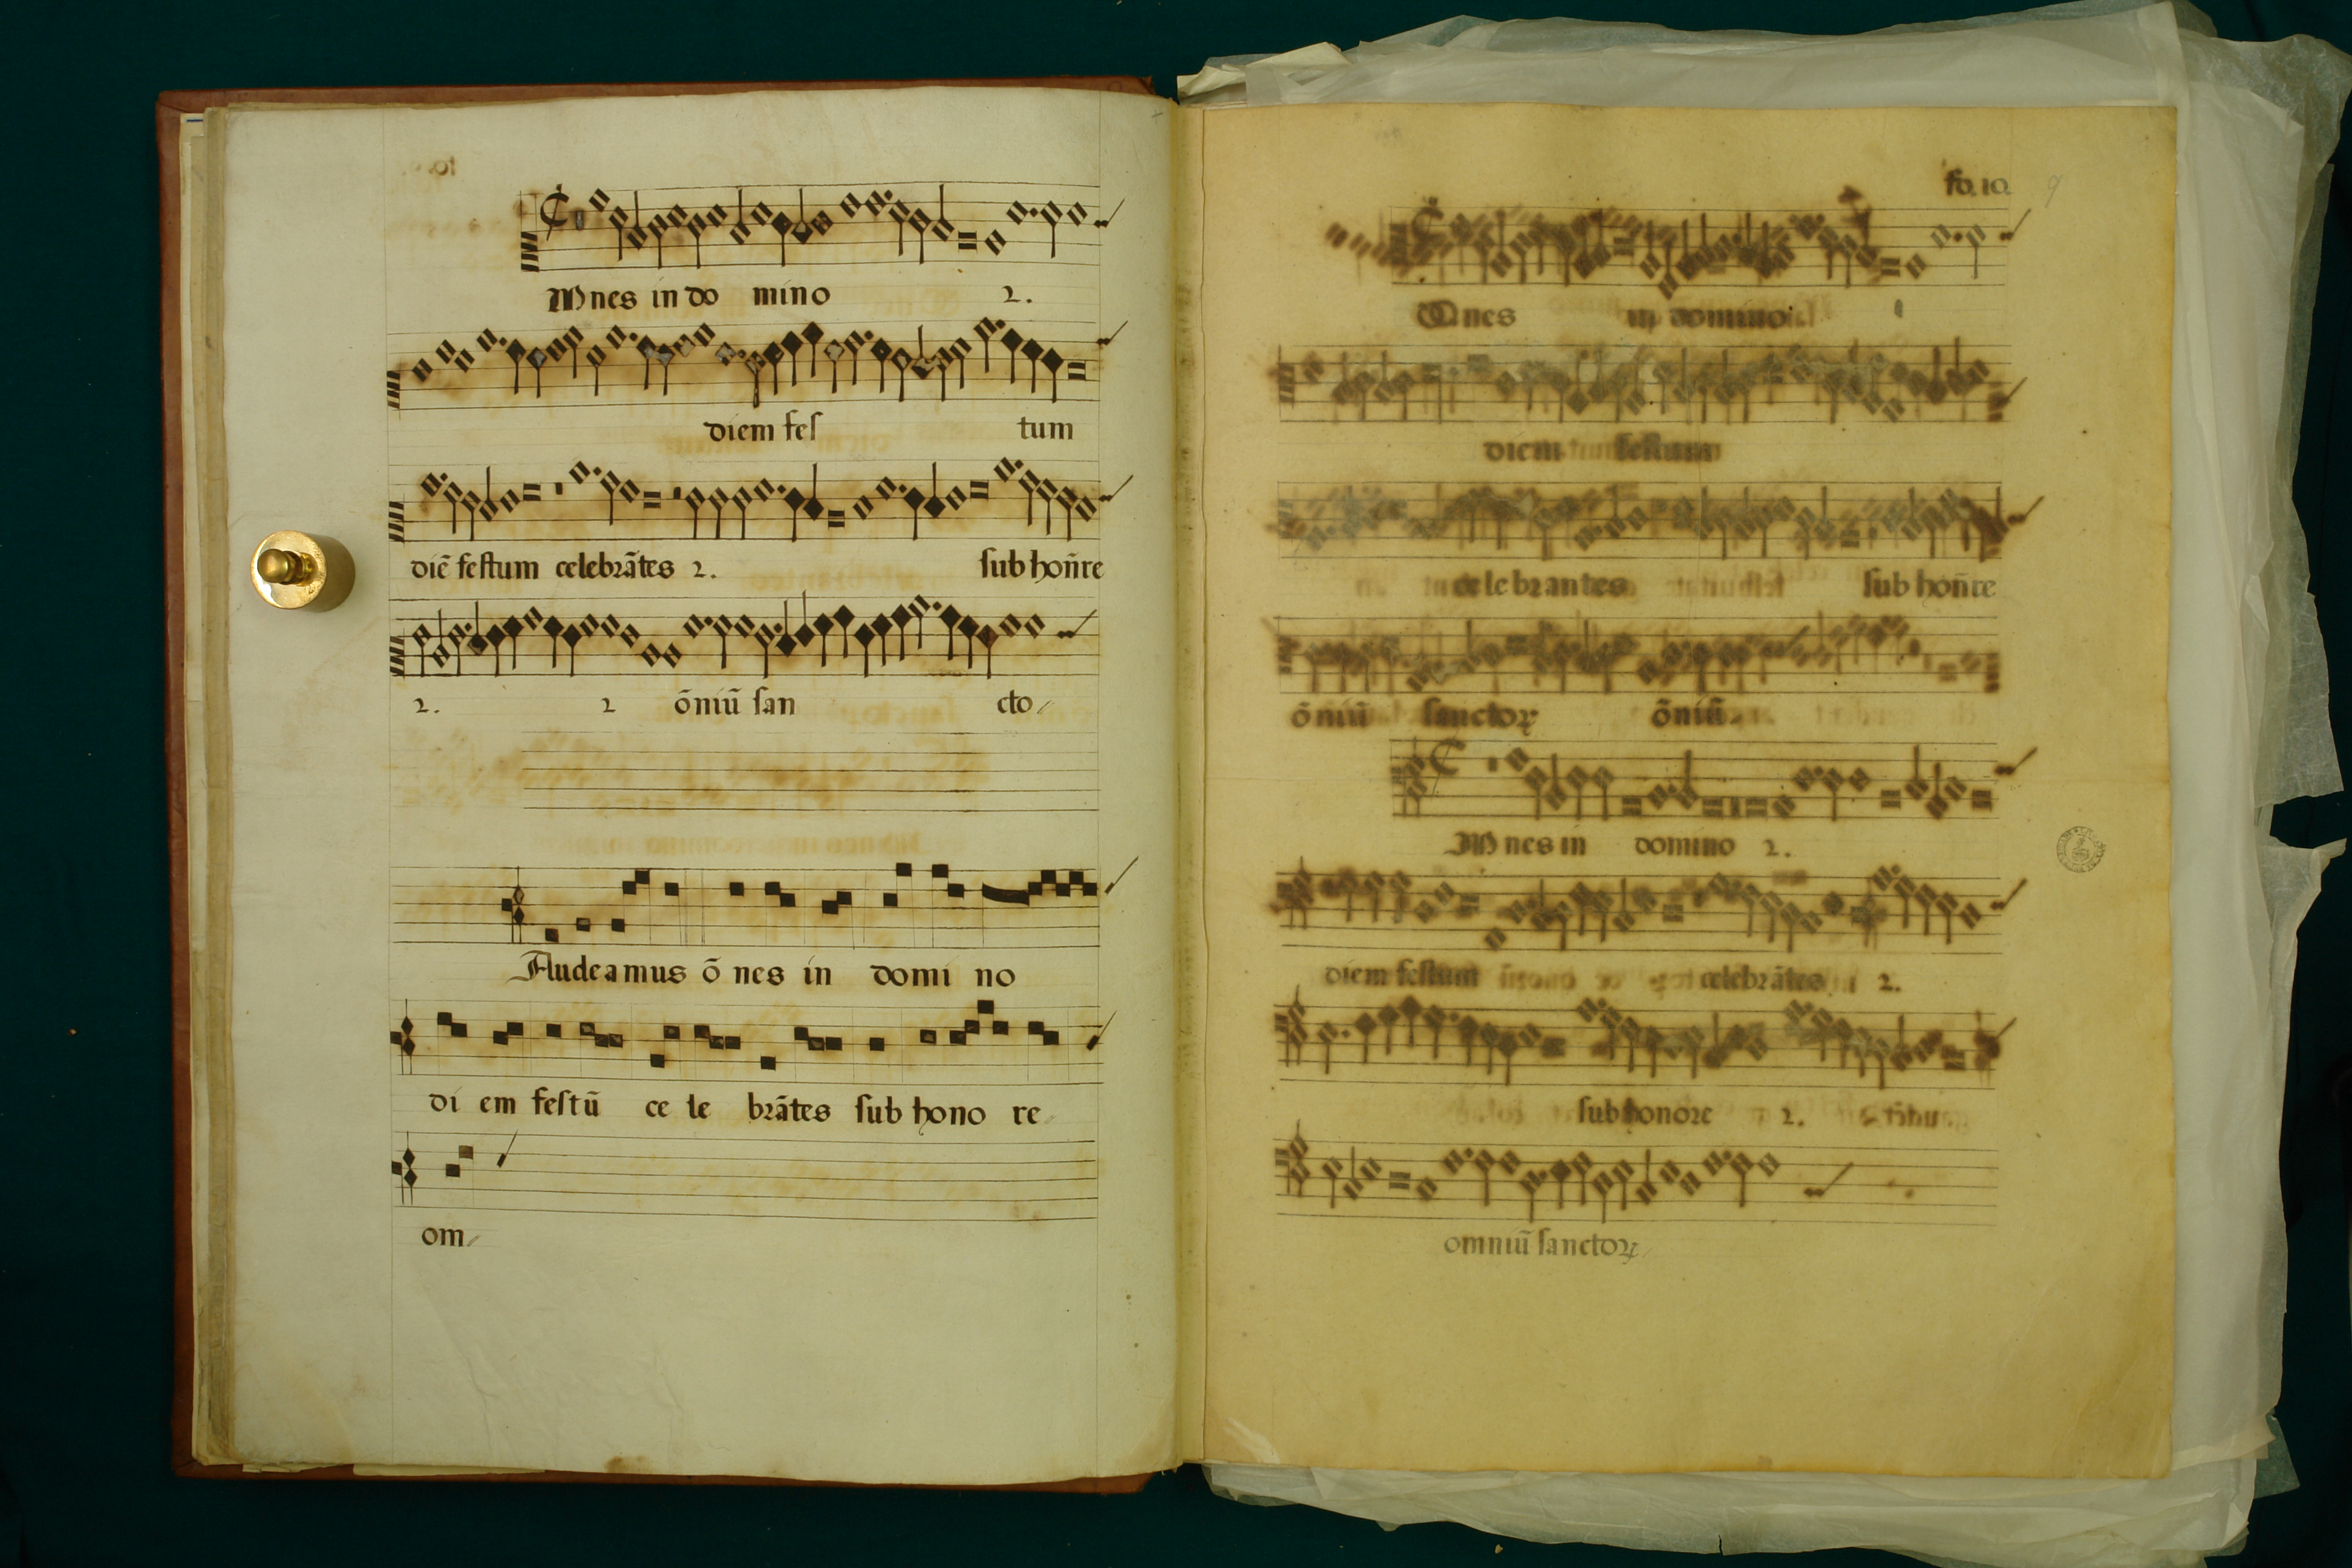 Mnes in do mino 2.
diem feſ tum
diē feſtum celebrātes 2. ſub hoñre
2. 2 ōniū ſan cto
Audeamus ō nes in domi no
di em feſtū ce le brātes ſub hono re
om
fo. 10. 9
Ones in domino
diem feſtum
celebrantes ſub hoñre
ōniū ſanctoꝝ ōniū
Mnes in domino 2.
diem feſtum celebrātes 2.
ſub honore 2.
omniū ſanctoꝝ